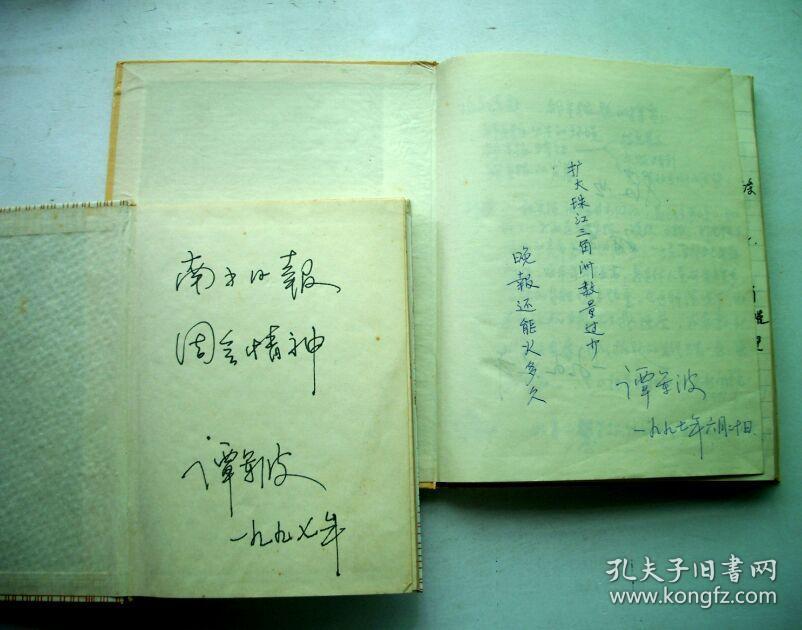 南方日报
周会精神
谭军波
一九九七年
扩大珠江三角洲数量过少
晚报还能火多久
谭军波
一九九七年六月二十日
孔夫子旧书网
www.kongfz.com